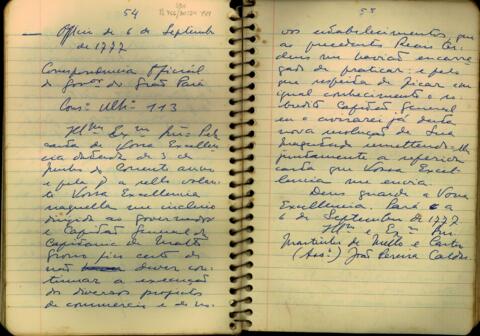 54
Officio de 6 de Septembro
de 1777
Correspondencia Official
do Gov.or do Grão Pará
Cons.o Ultr.o 113
Ill.mo Ex.mo Snr. Pela
carta de Vossa Excellen-
cia datada de 3 de
Junho do Corrente anno
e pela q a nella
Vossa Excellencia
naquella me incluio
dirigida ao governador
e Capitão General da
Capitania de Matto
Grosso fico certo de
não dever con-
tinuar a execução
dos diversos projectos
de commercio e de no-
55
vos estabelecimentos, que
as precedentes Reaes Or-
dens me havião encarre-
gado de praticar: e pelo
que respeita de ficar com
igual conhecimento o su-
bredito Capitão General
eu o avizarei já desta
nova resolução de Sua
Magestade remettendo-lhe
juntamente a referida
carta que Vossa Excel-
lencia me envia.
Deus guarde a Vossa
Excellencia. Pará
6 de Septembro de 1777
Ill.mo e Ex.mo Snr.
Martinho de Mello e Castro
(Ass.) João Pereira Caldas